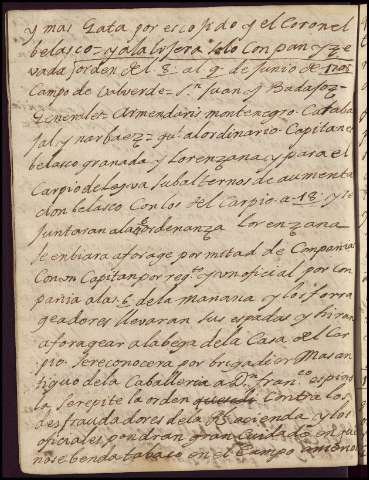 y mas Gata por escojido y el Coronel
belasco = y a la lijera solo con pan y ze
vada / orden del 8 al 9 de Junio de
Campo de Valverde = Sn Juan y Badajoz =
Generales Armendaris montenegro Caraba
jal y narbaez = al ordinario Capitanes
belasco granada y Lorenzana y para el
Carpio de los subalternos de aumenta
con belasco Con los del Carpio a 18 y se
juntaran ala ordenanza Lorenzana
se enbiara a forage por mitad de Companias
Con un Capitan por regto y un oficial por con
pania a las 6 de la manana y los forra
geadores llevaran sus espadas y hiran
a foragear a la bega de la Casa del Car
pio. Se reconocera por brigadier Mas an
tiguo de la Caballeria a Dn Franco espino
la se repite la orden Contra los
desfraudadores de la Rl hacienda y los
oficiales pondran gran Cuidado en que
no se benda tabaco en el Campo